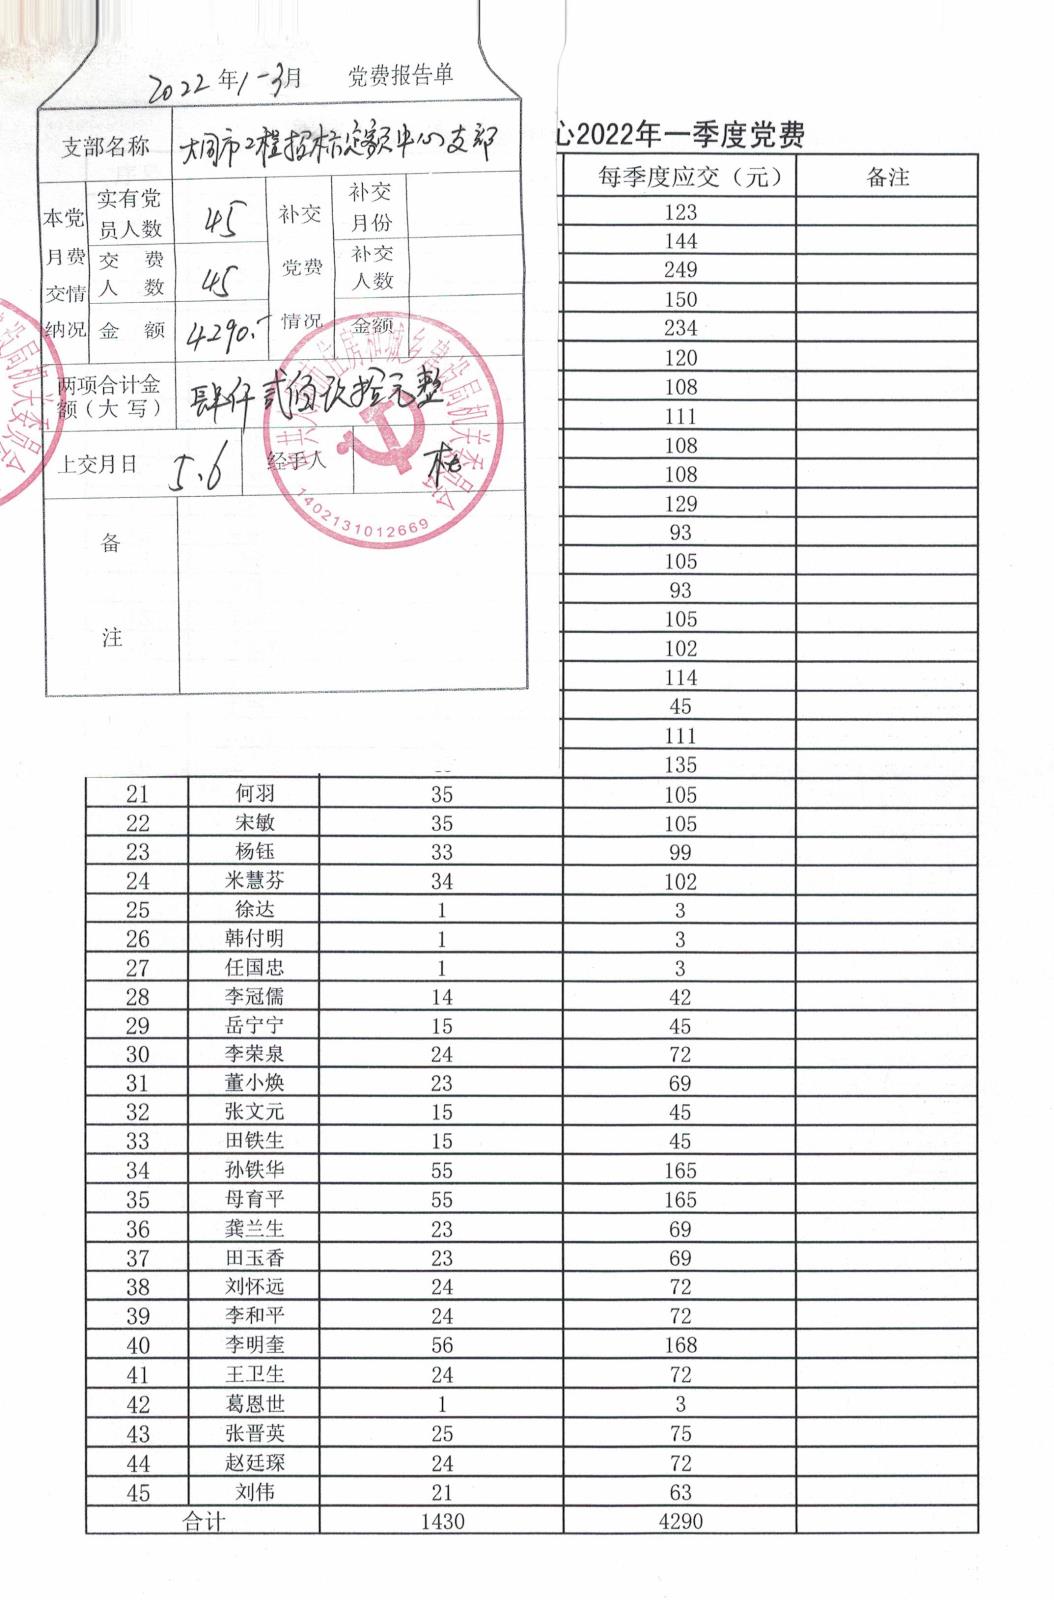 2022年1-3月 党费报告单
支部名称 大同市工程招标定额中心支部
本月交纳党费情况
实有党员人数 45
交费人数 45
金额 4290.-
补交党费情况
补交月份
补交人数
金额
两项合计金额(大写) 肆仟贰佰玖拾元整
上交月日 5.6 经手人
备注
1402131012669
心2022年一季度党费
每季度应交（元） 备注
123
144
249
150
234
120
108
111
108
108
129
93
105
93
105
102
114
45
111
135
21 何羽 35 105
22 宋敏 35 105
23 杨钰 33 99
24 米慧芬 34 102
25 徐达 1 3
26 韩付明 1 3
27 任国忠 1 3
28 李冠儒 14 42
29 岳宁宁 15 45
30 李荣泉 24 72
31 董小焕 23 69
32 张文元 15 45
33 田铁生 15 45
34 孙铁华 55 165
35 母育平 55 165
36 龚兰生 23 69
37 田玉香 23 69
38 刘怀远 24 72
39 李和平 24 72
40 李明奎 56 168
41 王卫生 24 72
42 葛恩世 1 3
43 张晋英 25 75
44 赵廷琛 24 72
45 刘伟 21 63
合计 1430 4290